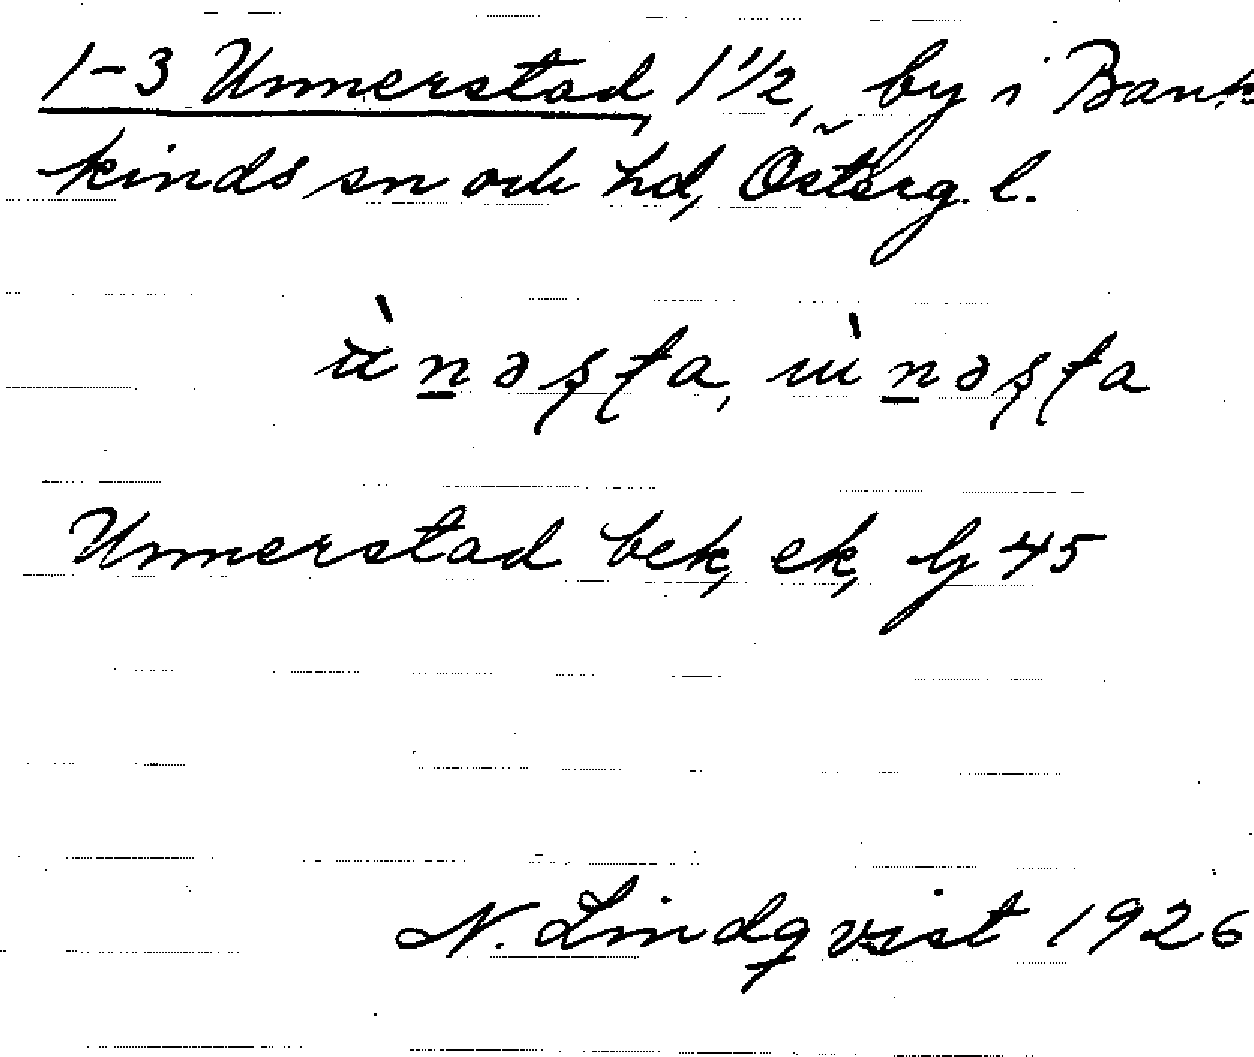 1-3 Unnerstad, 1 1/2, by i Bank
kinds sn och hd, Österg. l.
ù̀n̲əş̌ta, ɯ̀n̲əşta
Unnerstad bek, ek, lj 45
N. Lindqvist 1926